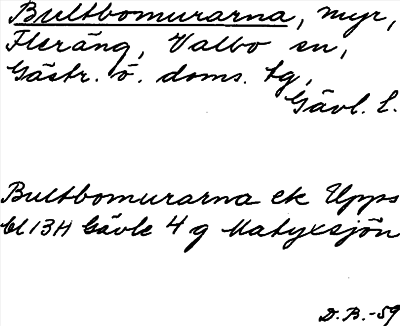 Bultbomurarna, myr,
Fleräng, Valbo sn,
Gästr. ö. doms. tg,
Gävl. L.
Bultbomurarna ek Upps
bl 13H Gävle 4 g Matyxsjön
D.B.-59